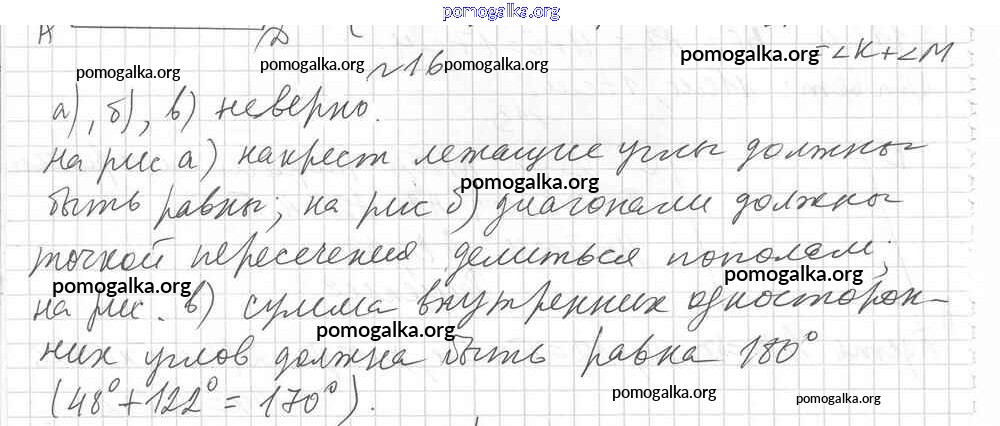 pomogalka.org
A D
pomogalka.org pomogalka.org ~16 pomogalka.org pomogalka.org = ∠K + ∠M
а), б), в) неверно.
pomogalka.org
на рис а) накрест лежащие углы должны
pomogalka.org
быть равны; на рис б) диагонали должны
точкой пересечения делиться пополам;
pomogalka.org pomogalka.org
на рис. в) сумма внутренних односторон-
pomogalka.org
них углов должна быть равна 180°
(48° + 122° = 170°).
pomogalka.org pomogalka.org